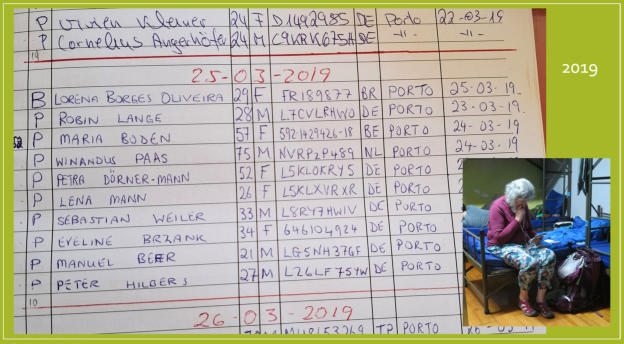 P Vivien Klemer 24 F D1492985 DE Porto 22-03-19
P Cornelius Angerhöfer 24 M C9KRK675H DE -11- -11-
2019
25-03-2019
B LORENA BORGES OLIVEIRA 29 F FR189877 BR PORTO 25-03-19.
P ROBIN LANGE 28 M L7CVLRHW0 DE PORTO 23-03-19.
P MARIA BODEN 57 F 592 1429426-18 BE PORTO 24-03-19
P WINANDUS PAAS 75 M NVRP2P489 NL PORTO 24-03-19
P PETRA DÖRNER-MANN 52 F L5KLOKRY5 DE PORTO
P LENA MANN 26 F L5KLXVRXR DE PORTO
P SEBASTIAN WEILER 33 M L8RY7HWIV DE PORTO
P EVELINE BRZANK 34 F 646104924 DE PORTO
P MANUEL BEER 21 M LG5NH37GF DE PORTO
P PETER HILBERS 27 M LZ6LF75YW DE PORTO
10
26-03-2019
PORTO